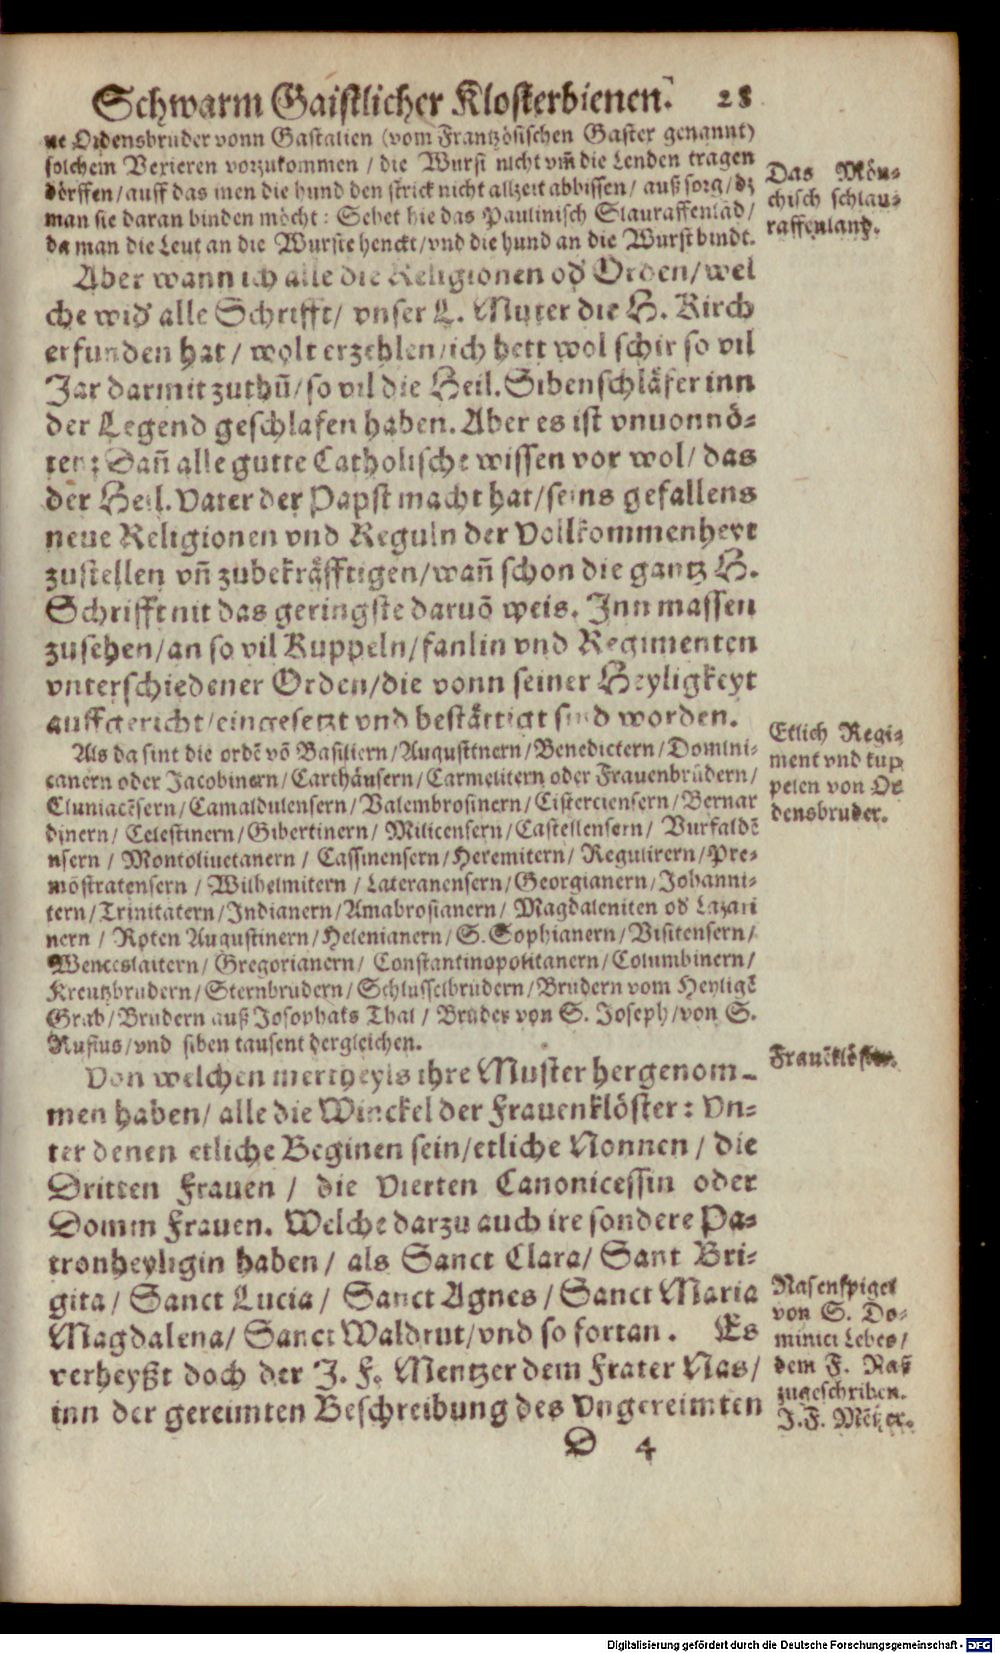 Schwarm Gaistlicher Klosterbienen. 28
ne Ordensbruder vonn Gastalien (vom Frantzösischen Gaster genannt)
solchem Vexieren vorzukommen / die Wurst nicht vm̃ die Lenden tragen
dörffen/auff das inen die hund den strick nicht allzeit abbissen/ auß sorg/dz
man sie daran binden möcht: Sehet hie das Paulinisch Slauraffenlād/
da man die Leut an die Wurste henckt/vnd die hund an die Wurst bindt.
Das Mön-
chisch schlau-
raffenland.
Aber wann ich alle die Religionen od' Orden/wel
che wid' alle Schrifft/ vnser L. Muter die H. Kirch
erfunden hat / wolt erzehlen/ich hett wol schir so vil
Jar darmit zuthū/so vil die Heil. Sibenschläfer inn
der Legend geschlafen haben. Aber es ist vnuonnö-
ten: Dañ alle gutte Catholische wissen vor wol/ das
der Heil. Vater der Papst macht hat/seins gefallens
neue Religionen vnd Reguln der Vollkommenheyt
zustellen vñ zubekräfftigen/wañ schon die gantz H.
Schrifft nit das geringste daruō weis. Inn massen
zusehen/an so vil Kuppeln/fanlin vnd Regimenten
vnterschiedener Orden/die vonn seiner Heyligkeyt
auffgericht/eingesetzt vnd bestättigt sind worden.
Etlich Regi-
ment vnd kup
pelen von Or
densbruder.
Als da sint die ordē vō Basiliern/Augustinern/Benedictern/Domini-
canern oder Jacobinern/Carthäusern/Carmelitern oder Frauenbrüdern/
Cluniacēsern/Camaldulensern/Valembrosinern/Cisterciensern/Bernar
dinern/Celestinern/Gibertinern/ Milicensern/Castellensern/ Vurfaldē
nsern / Montoliuetanern / Cassinensern/Heremitern/ Regulirern/Pre-
mōstratensern / Wilhelmitern / Lateranensern/Georgianern/Johanni-
tern/Trinitatern/Indianern/Amabrosianern/ Magdaleniten od' Lazari
nern / Roten Augustinern/Helenianern/S. Sophianern/Visitensern/
Wenceslaitern/ Gregorianern/ Constantinopolitanern/Columbinern/
Kreutzbrudern/Sternbrudern/Schlüsselbrüdern/Brüdern vom Heyligē
Grab/Brudern auß Josophats Thal / Brüder von S. Joseph/von S.
Rufius/vnd siben tausent dergleichen.
Frauēklöster.
Von welchen mertheyls ihre Muster hergenom-
men haben/ alle die Winckel der Frauenklöster: Vn-
ter denen etliche Beginen sein/etliche Nonnen / die
Dritten Frauen / die Vierten Canonicessin oder
Domm Frauen. Welche darzu auch ire sondere Pa-
tronheyligin haben/ als Sanct Clara/ Sant Bri-
gita/ Sanct Lucia/ Sanct Agnes/ Sanct Maria
Magdalena/ Sanct Waldrut/vnd so fortan. Es
verheyßt doch der J. F. Mentzer dem Frater Nas/
inn der gereimten Beschreibung des Vngereimten
Nasenspigel
von S. Do-
minici Lebēs/
dem F. Nasē
zugeschriben.
J.F. Mētzer.
D 4
Digitalisierung gefördert durch die Deutsche Forschungsgemeinschaft - DFG